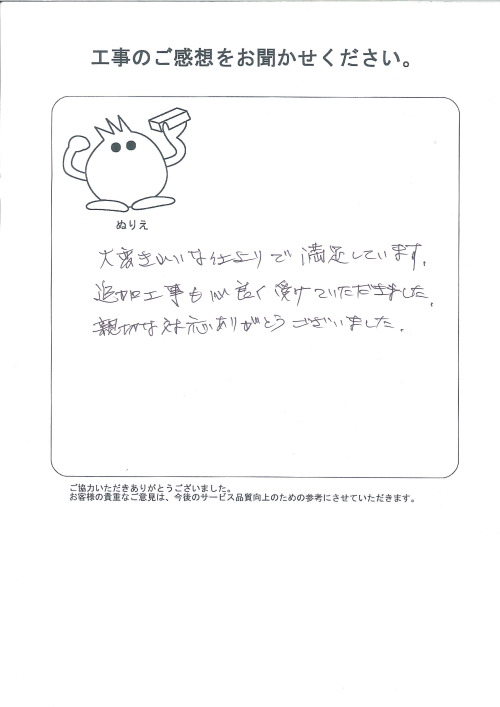 工事のご感想をお聞かせください。
ぬりえ
大変きれいな仕上りで満足しています。
追加工事も心良く受けていただきました。
親切な対応ありがとうございました。
ご協力いただきありがとうございました。
お客様の貴重なご意見は、今後のサービス品質向上のための参考にさせていただきます。